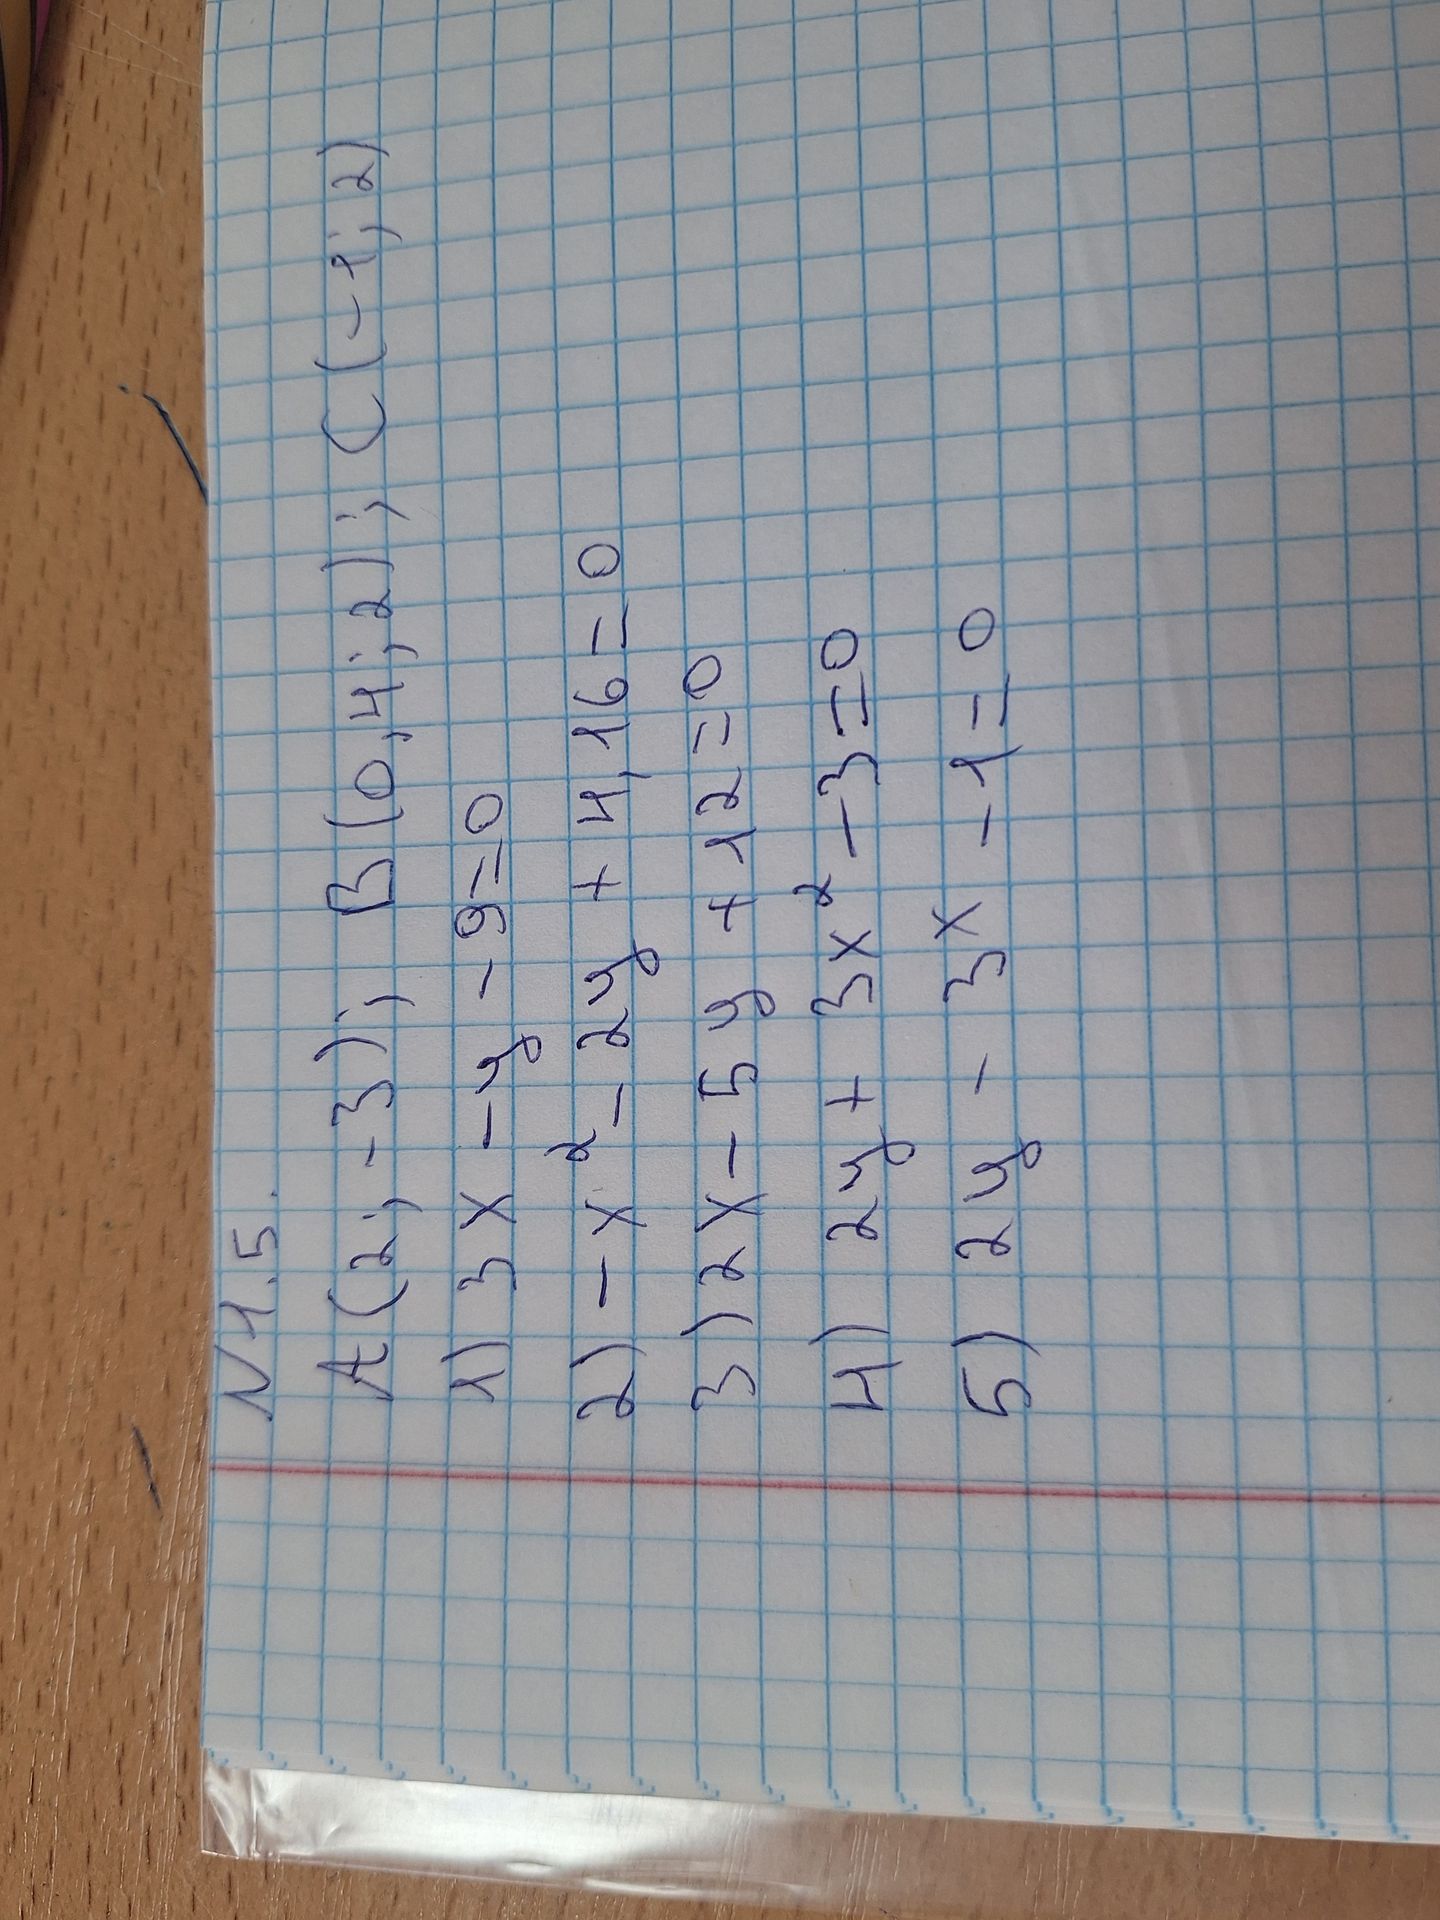 N1.5.
A(2; -3); B(0,4; 2); C(-1; 2)
1) 3x - y - 9 = 0
2) - x² - 2y + 4,16 = 0
3) 2x - 5y + 12 = 0
4) 2y + 3x² - 3 = 0
5) 2y - 3x - 1 = 0